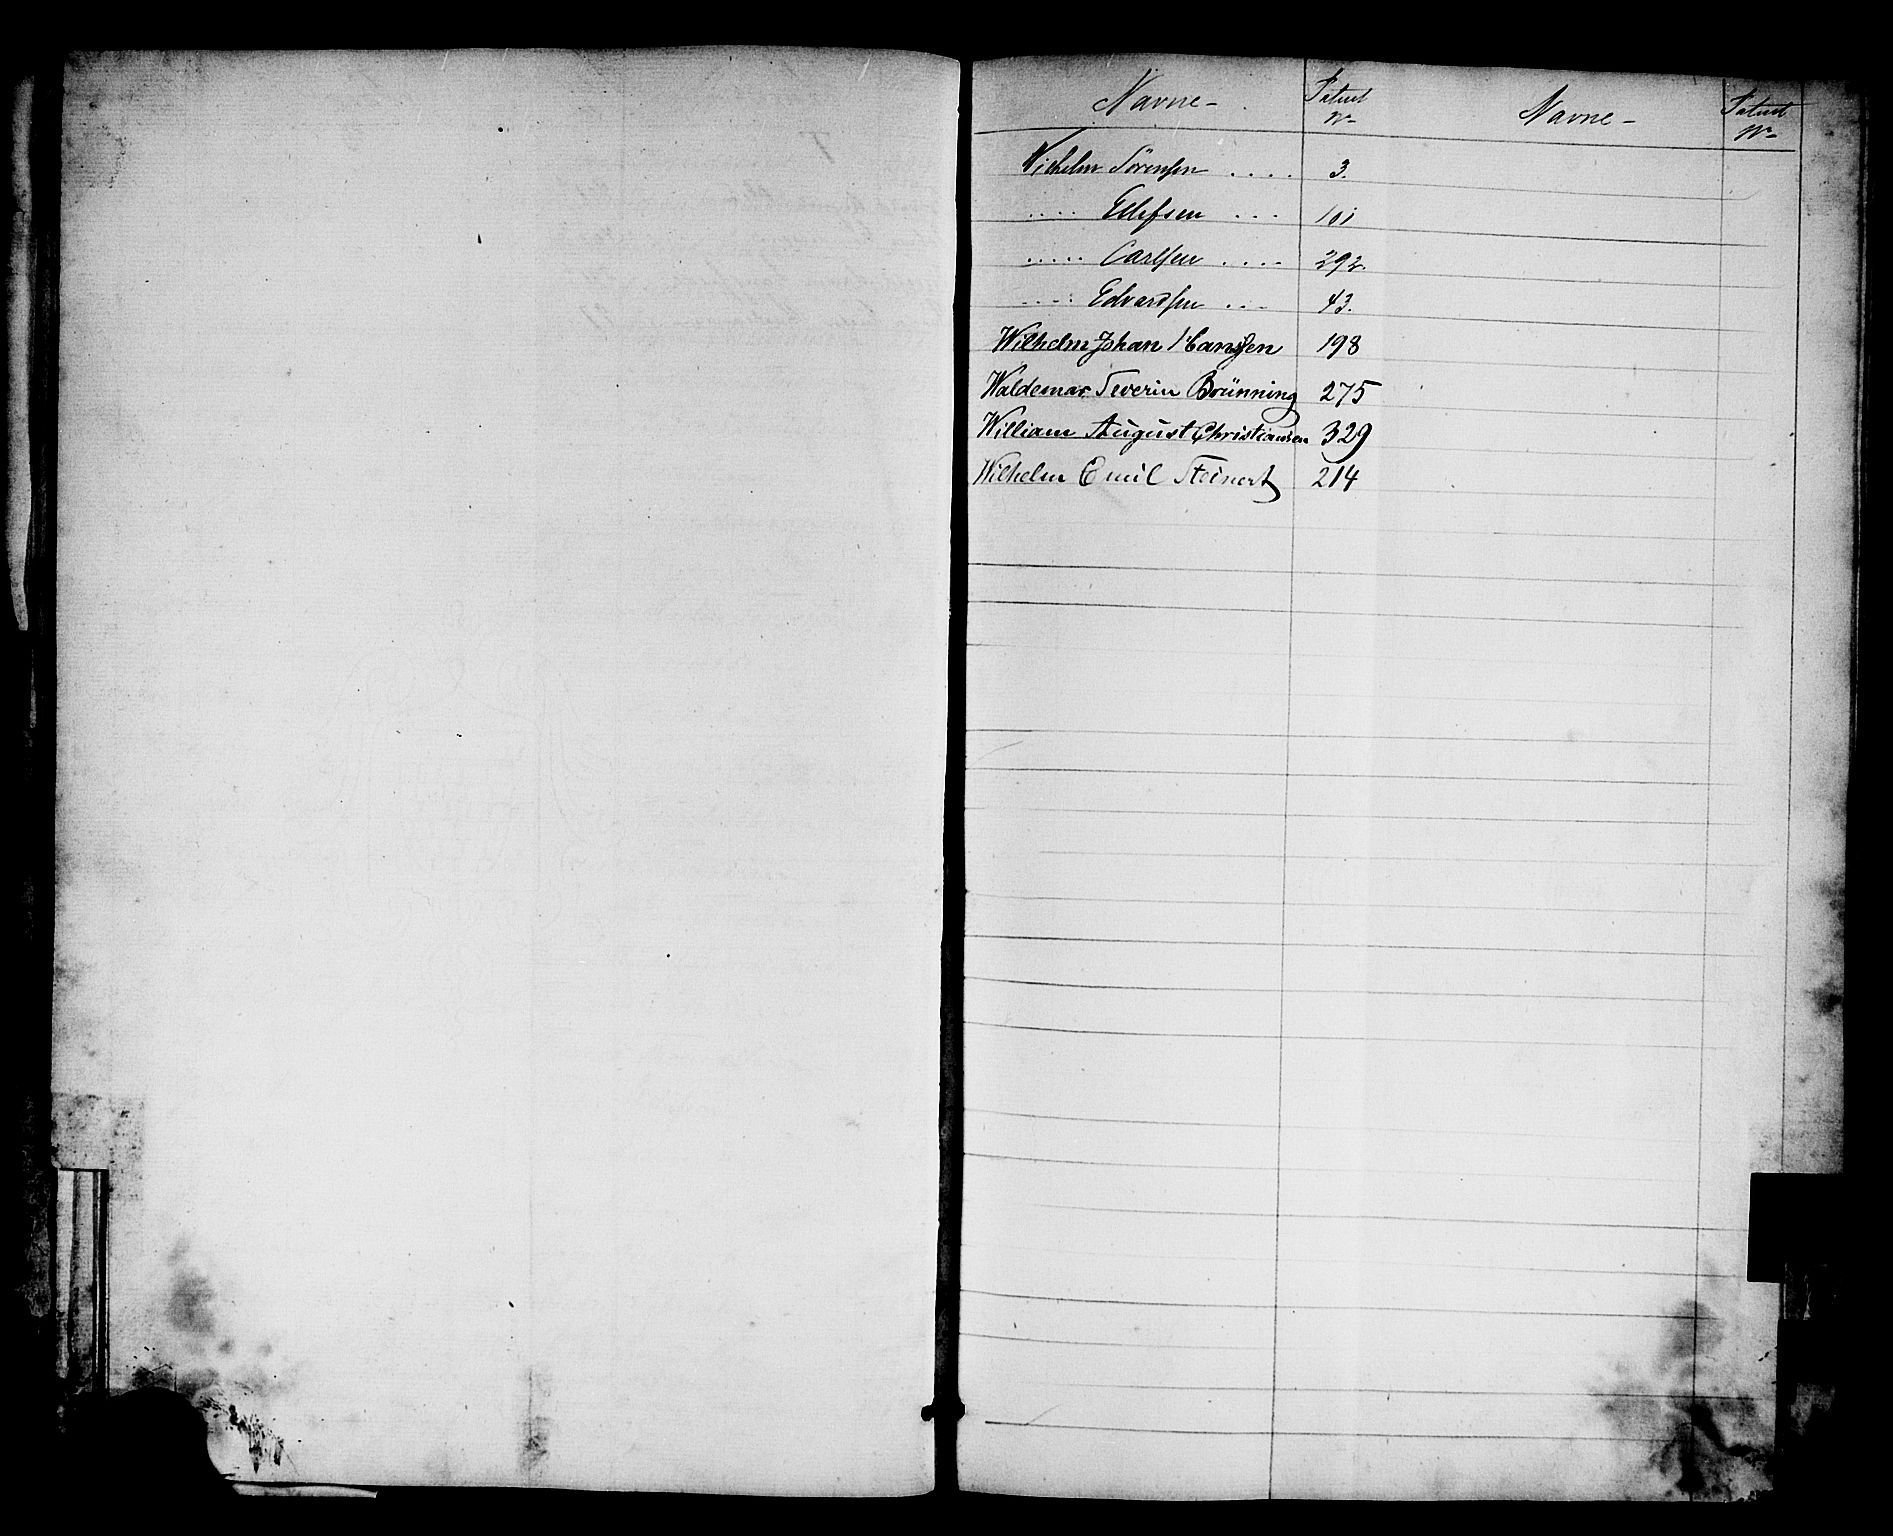 Navne - Patent Nr Navne - Patent Nr
Vilhelm Sörensen .... 3.
.... Ellefsen ... 101
..... Carlsen .... 292.
.... Edvardsen ... 43.
Wilhelm Johan Hanssen 198
Waldemar Severin Brünning 275
William August Christiansen 329
Wilhelm Emil Steinert 214